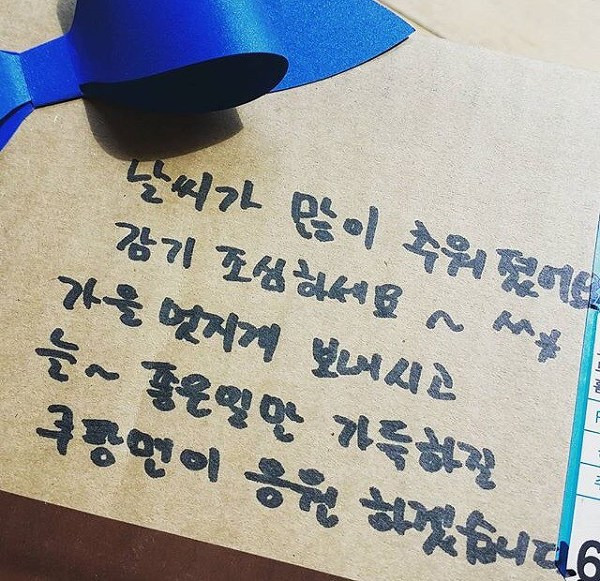 날씨가 많이 추워졌어요
감기 조심하세요 ~ ^^*
가을 멋지게 보내시고
늘~ 좋은일만 가득하길
쿠팡맨이 응원 하겠습니다